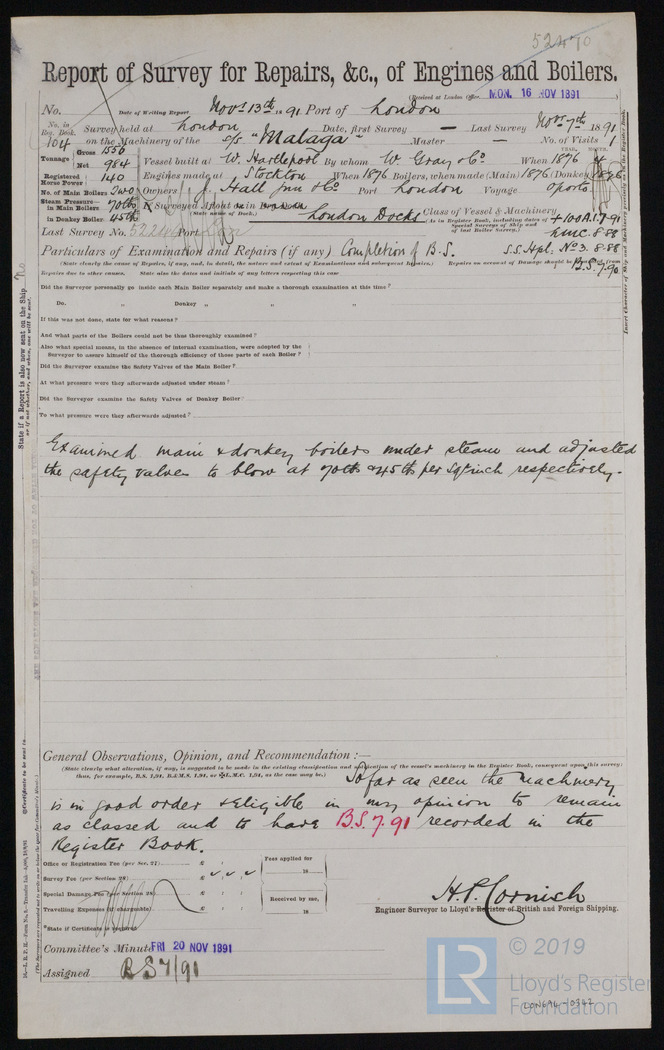 52470
Report of Survey for Repairs, &c., of Engines and Boilers.
(Received at London Office MON. 16 NOV 1891)
No. Date of Writing Report Novr 13th 1891 Port of London
No. in Reg. Book. Survey held at London Date, first Survey — Last Survey Novr 7th 1891
104 on the Machinery of the s/s "Malaga" Master — No. of Visits 1
Tonnage Gross 1556 Net 984 Vessel built at W. Hartlepool By whom W. Gray & Co. When 1876
YEAR. MONTH.
Registered Horse Power 140 Engines made at Stockton When 1876 Boilers, when made (Main) 1876 (Donkey) 1876
No. of Main Boilers Two Owners J. Hall Junr & Co Port London Voyage Oporto
Steam Pressure— in Main Boilers 70 lbs Surveyed Afloat or in Dry Dock London Docks Class of Vessel & Machinery
in Donkey Boiler 45 lbs (State name of Dock.) (As in Register Book, including dates of Special Surveys of Ship and of last Boiler Survey.) +100A1.7.91
Last Survey No. Port Lon LMC. 8.88
Particulars of Examination and Repairs (if any) Completion of B.S. S.S. Hpl. No 3. 8.88
B.S. 7.90
(State clearly the cause of Repairs, if any, and, in detail, the nature and extent of Examinations and subsequent Repairs.) Repairs on account of Damage should be from
Repairs due to other causes. State also the dates and initials of any letters respecting this case
Did the Surveyor personally go inside each Main Boiler separately and make a thorough examination at this time?
Do. " Donkey " " "
If this was not done, state for what reasons?
And what parts of the Boilers could not be thus thoroughly examined?
Also what special means, in the absence of internal examination, were adopted by the
Surveyor to assure himself of the thorough efficiency of those parts of each Boiler?
Did the Surveyor examine the Safety Valves of the Main Boiler?
At what pressure were they afterwards adjusted under steam?
Did the Surveyor examine the Safety Valves of Donkey Boiler
To what pressure were they afterwards adjusted?
Examined main & donkey boilers under steam and adjusted
the safety valves to blow at 70 lbs & 45 lbs per sq. inch respectively.
General Observations, Opinion, and Recommendation:—
(State clearly what alteration, if any, is suggested to be made in the existing classification and notification of the vessel's machinery in the Register Book, consequent upon this survey;
thus, for example, B.S. 1,94, B.&M.S. 1,94, or ✠L.M.C. 1,94, as the case may be.)
So far as seen the machinery
is in good order & eligible in my opinion to remain
as classed and to have B.S. 7.91 recorded in the
Register Book.
Office or Registration Fee (per Sec. 27) £ : : Fees applied for
Survey Fee (per Section 28) £ 18
Special Damage Fee (per Section 28) £ : : Received by me,
Travelling Expenses (if chargeable) £ : : 18
*State if Certificate is required
H. P. Cornish
Engineer Surveyor to Lloyd's Register of British and Foreign Shipping.
Committee's Minute FRI 20 NOV 1891
Assigned B S 7/91
State if a Report is also now sent on the Ship No.
LR
© 2019
Lloyd's Register
Foundation
LON696-0342